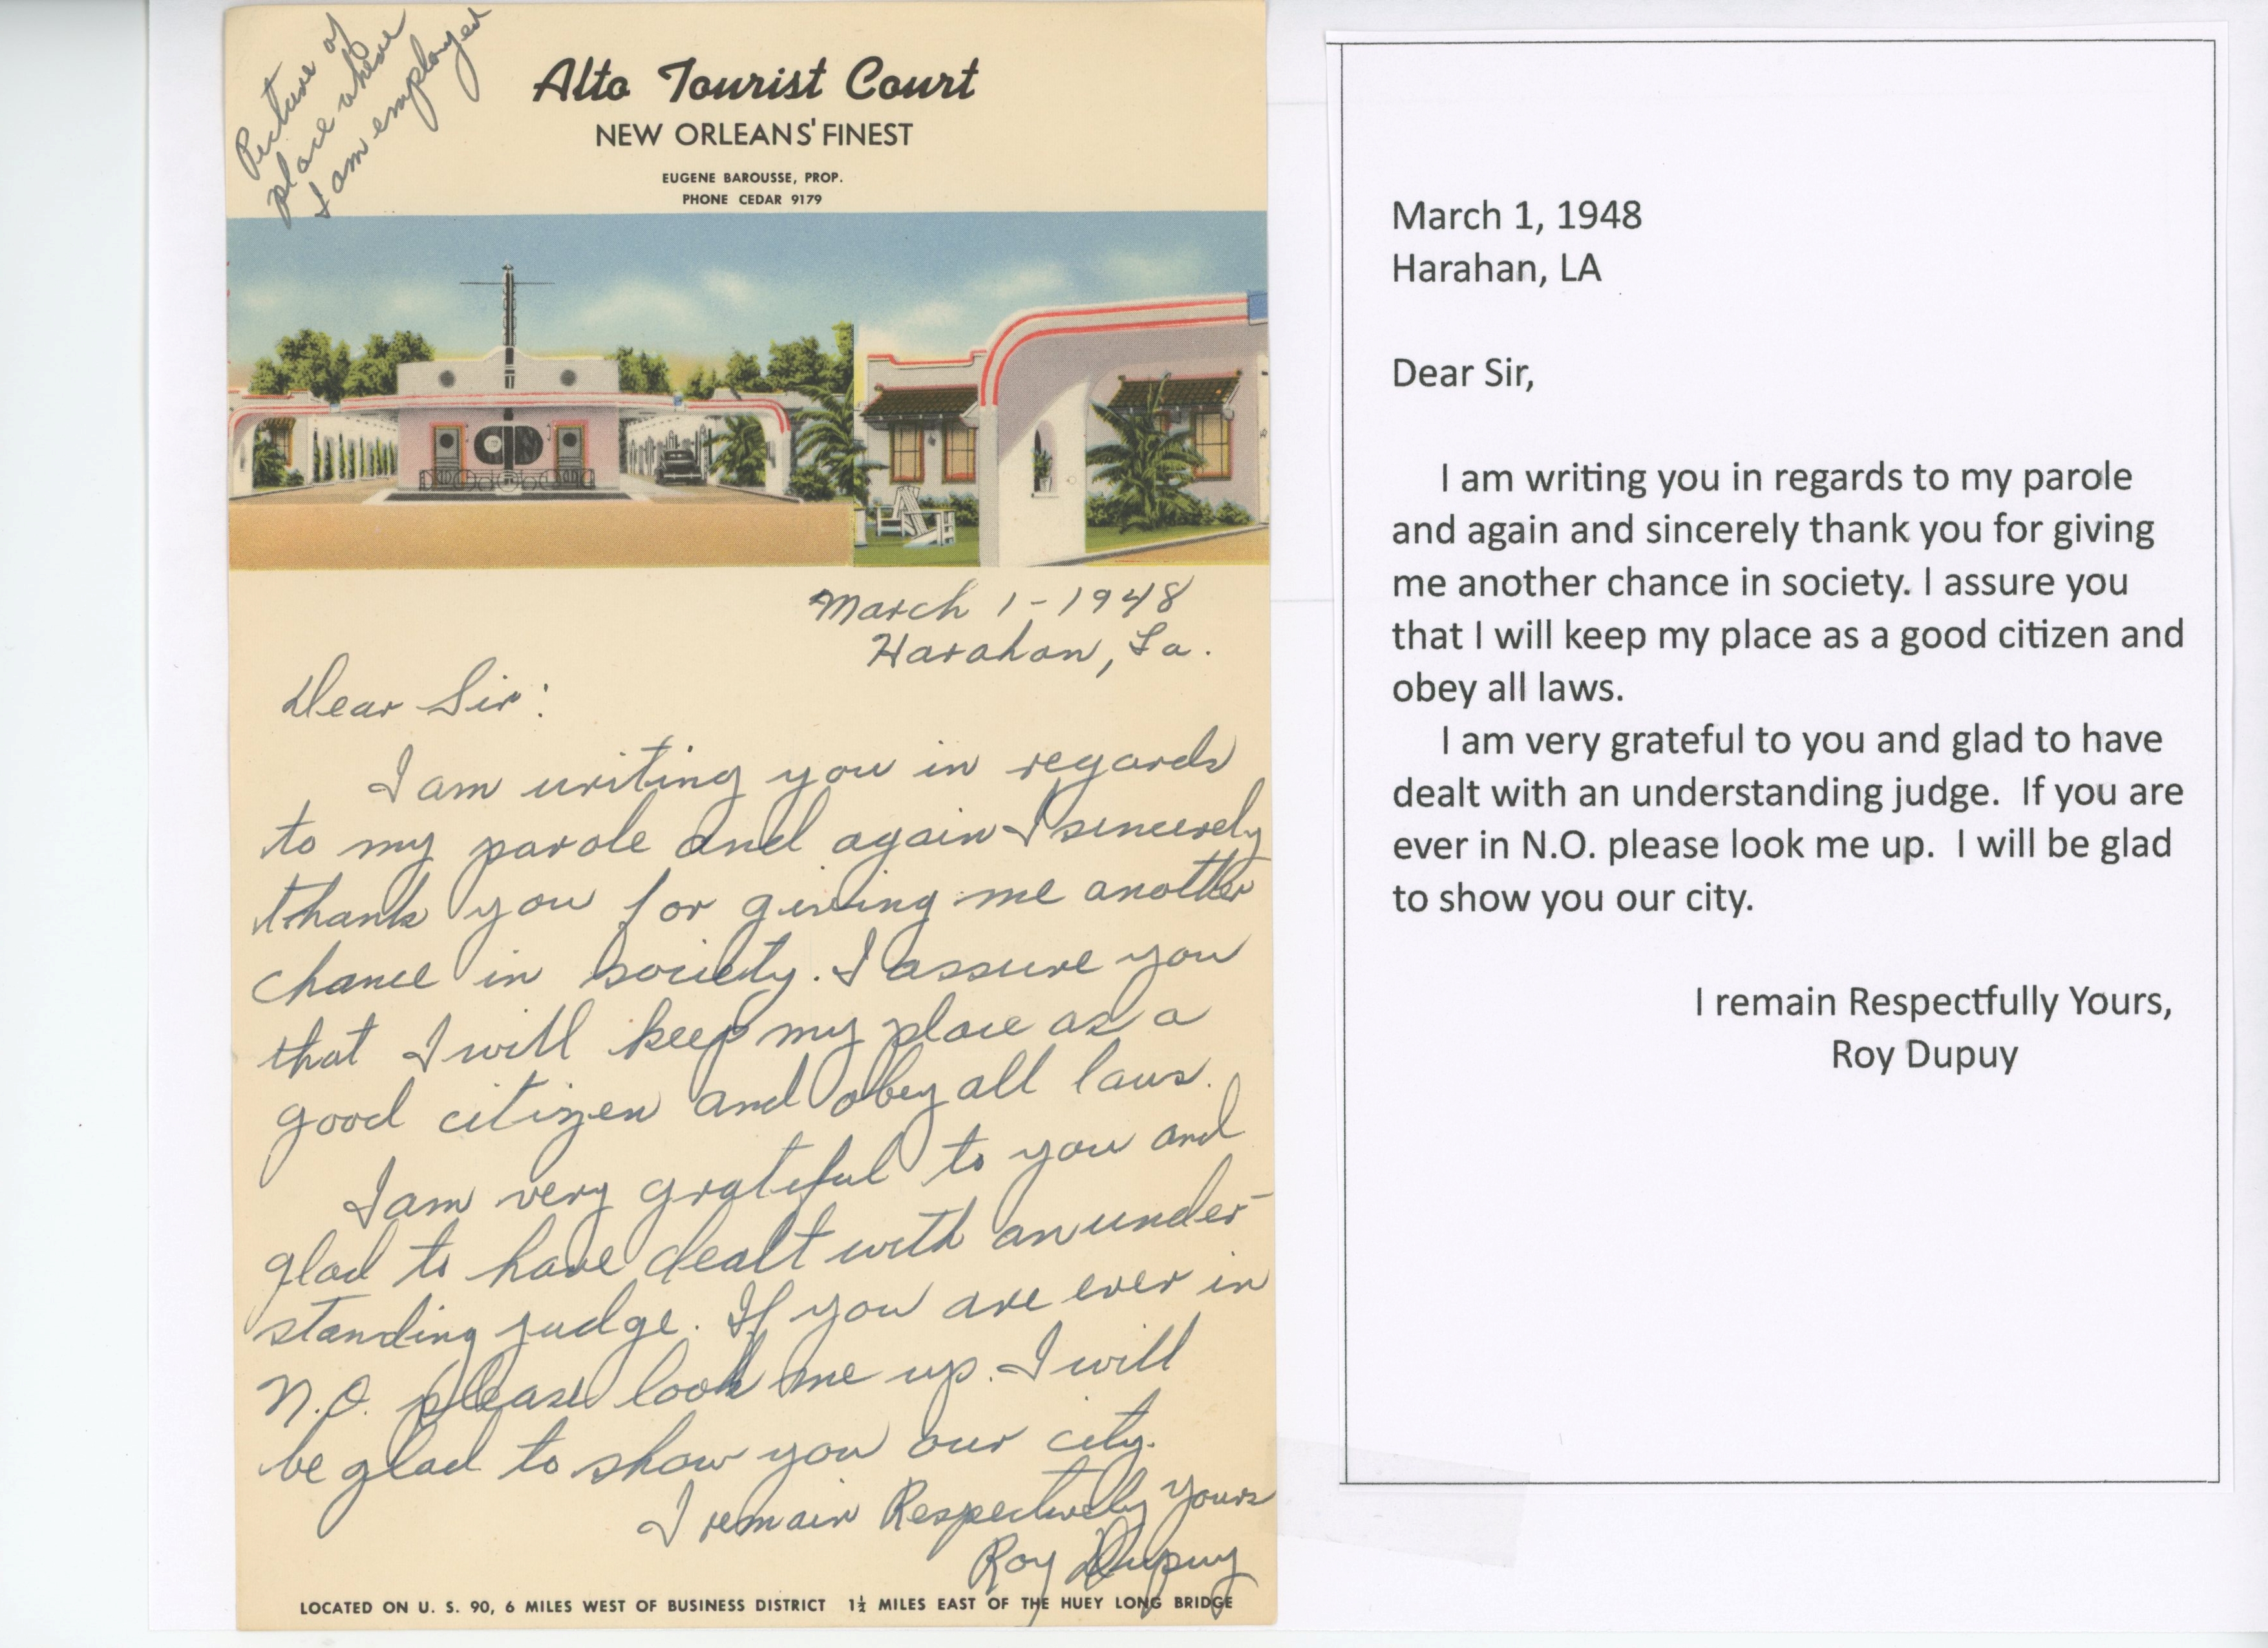 Picture of
place where
I am employed
Alto Tourist Court
NEW ORLEANS' FINEST
EUGENE BAROUSSE, PROP.
PHONE CEDAR 9179
March 1-1948
Harahan, La.
Dear Sir:
I am writing you in regards
to my parole and again I sincerely
thank you for giving me another
chance in society. I assure you
that I will keep my place as a
good citizen and obey all laws.
I am very grateful to you and
glad to have dealt with an under-
standing judge. If you are ever in
N.O. please look me up. I will
be glad to show you our city.
I remain Respectively yours
Roy Dupuy
LOCATED ON U. S. 90, 6 MILES WEST OF BUSINESS DISTRICT 1½ MILES EAST OF THE HUEY LONG BRIDGE
March 1, 1948
Harahan, LA
Dear Sir,
I am writing you in regards to my parole
and again and sincerely thank you for giving
me another chance in society. I assure you
that I will keep my place as a good citizen and
obey all laws.
I am very grateful to you and glad to have
dealt with an understanding judge. If you are
ever in N.O. please look me up. I will be glad
to show you our city.
I remain Respectfully Yours,
Roy Dupuy